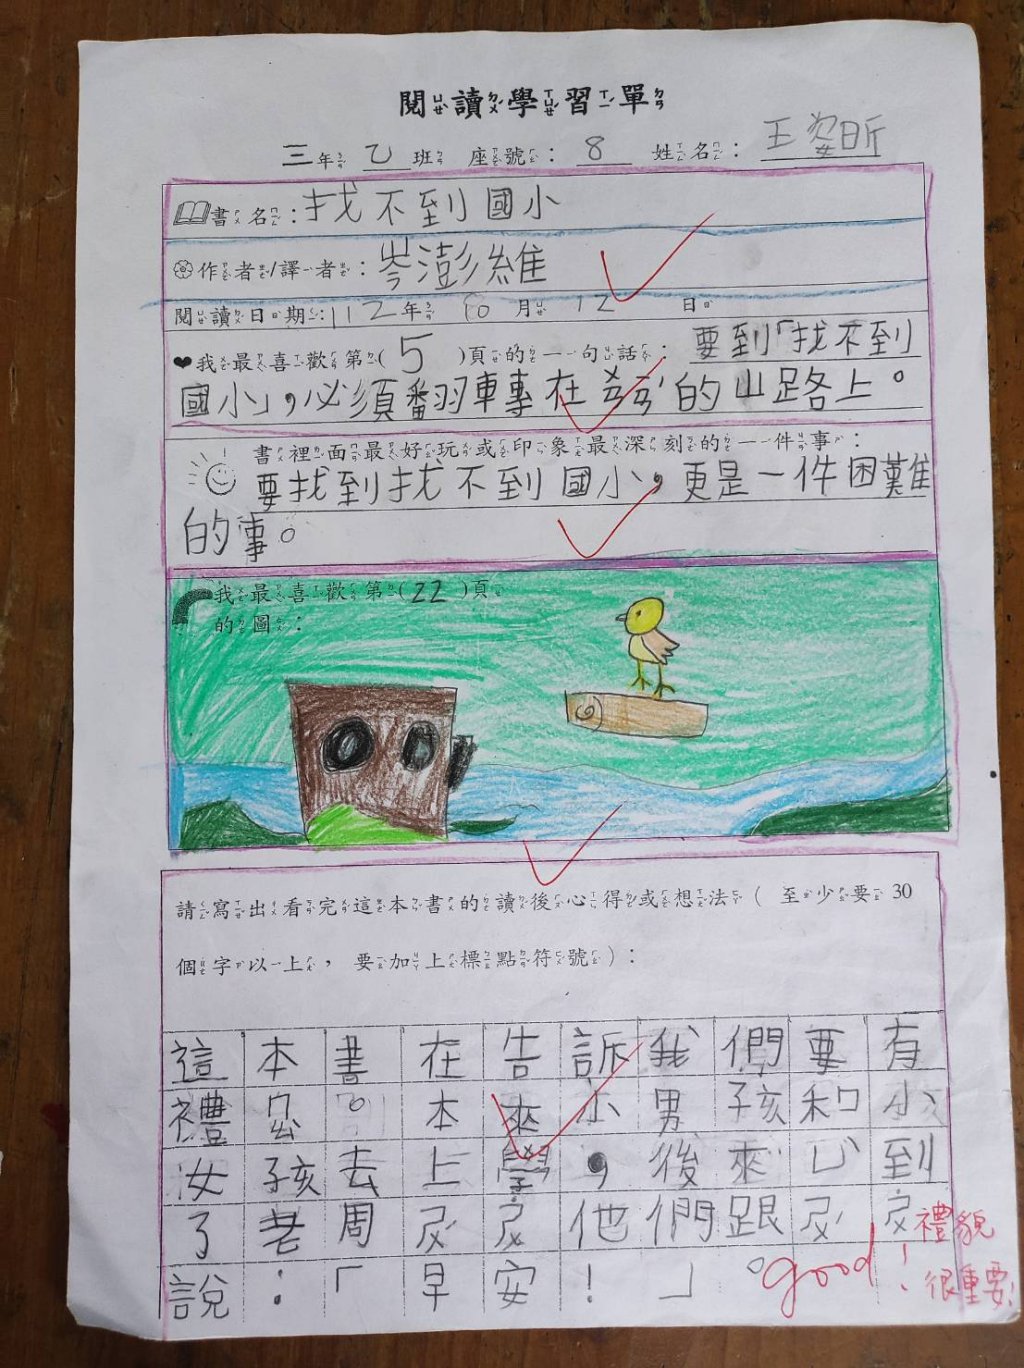 閱讀學習單
三年乙班 座號：8 姓名：王姿昕
書名：找不到國小
作者/譯者：岑澎維
閱讀日期：112年10月12日
我最喜歡第(5)頁的一句話：要到「找不到
國小」，必須翻軍專在ㄊㄞˊ的山路上。
書裡面最好玩或印象最深刻的一件事：
要找到找不到國小，更是一件困難
的事。
我最喜歡第(22)頁
的圖：
請寫出看完這本書的讀後心得或想法（至少要30
個字以上，要加上標點符號）：
這本書在告訴我們要有
禮 。本來小男孩和小
女孩去上學，後來 到
了老周 他們跟 ！
說：「早安！」。
good
禮貌
很重要！